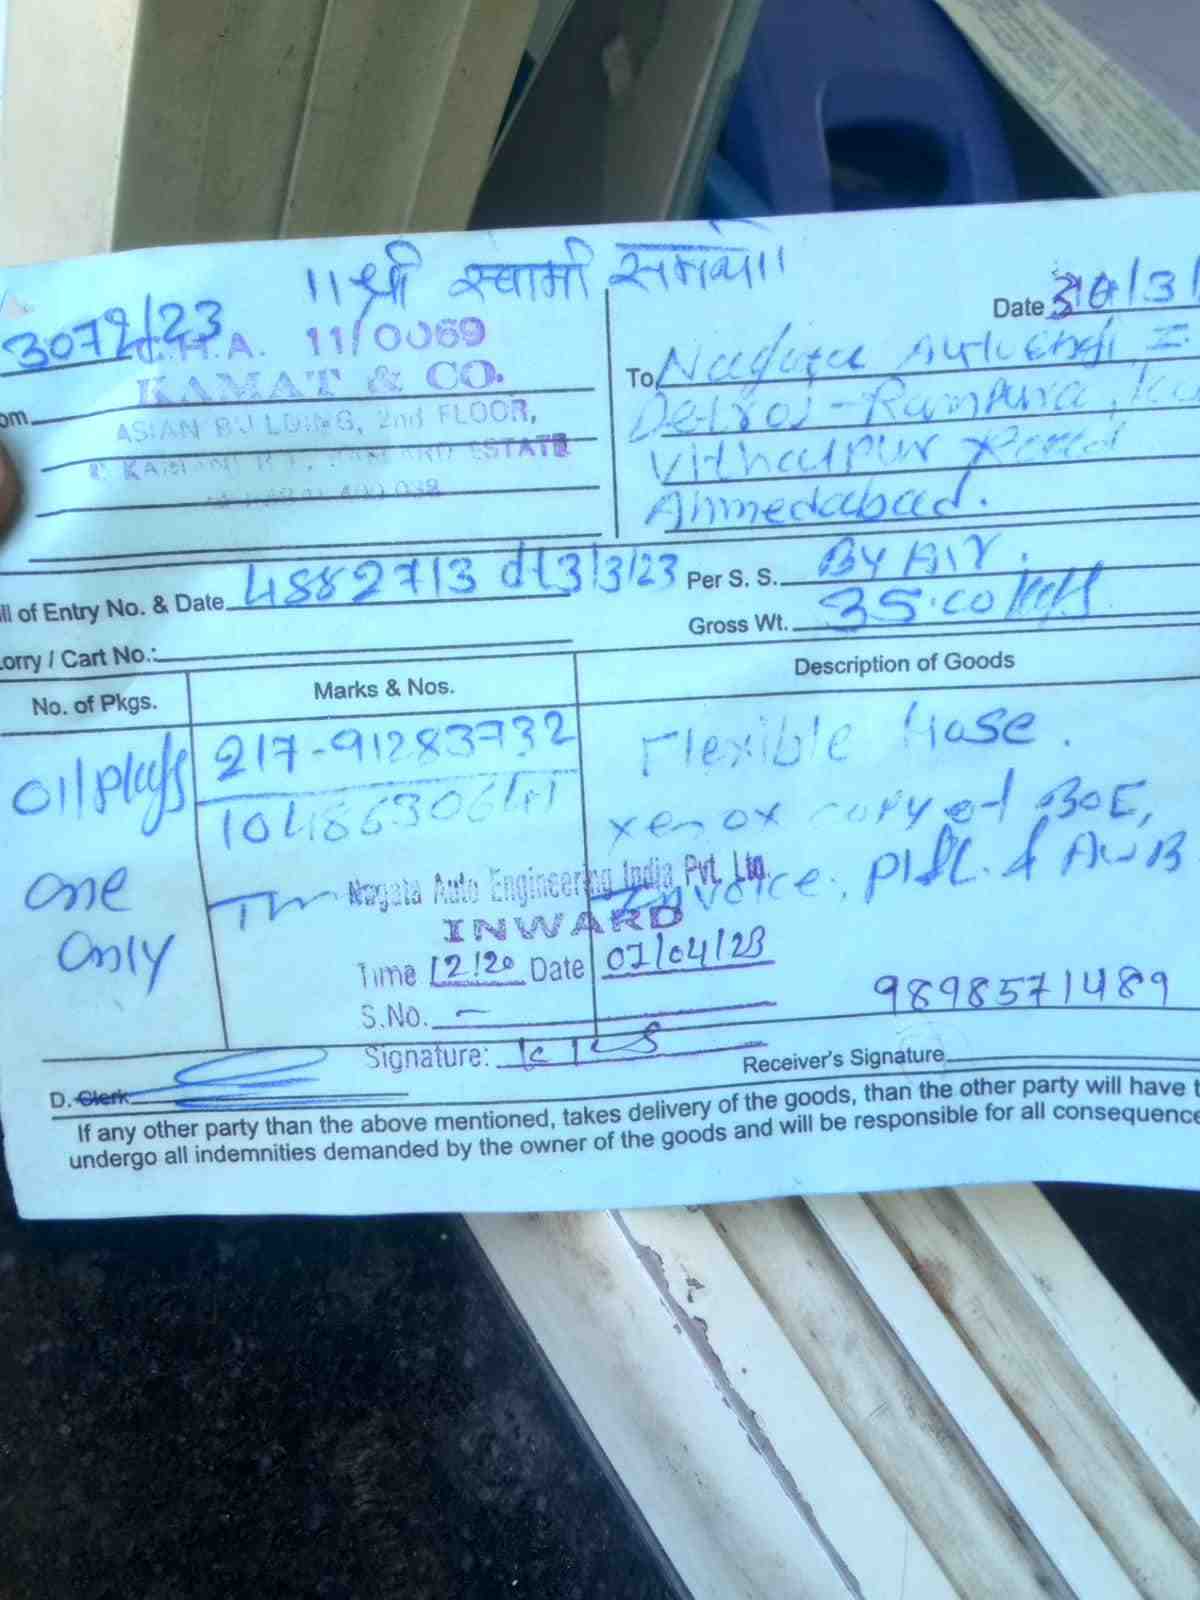 ॥श्री स्वामी समर्थ॥
3079/23
C.H.A. 11/0069
KAMAT & CO.
ASIAN BUILDING, 2nd FLOOR,
ESTATE
Date 30/3/
To Nagata Auto Engi I
Detroj - Rampura,
Vithalpur Road
Ahmedabad.
ill of Entry No. & Date 4882713 dt 3/3/23
Per S. S. By Air.
Gross Wt. 35.00 kgs
orry / Cart No.:
No. of Pkgs.
Marks & Nos.
Description of Goods
01 pkgs
one
only
217-91283732
Flexible Hose.
xerox copy of BOE,
Invoice, P/L. & AWB
Nagata Auto Engineering India Pvt. Ltd.
INWARD
Time 12:20 Date 07/04/23
S.No. -
Signature:
9898571489
D. Clerk
Receiver's Signature
If any other party than the above mentioned, takes delivery of the goods, than the other party will have t
undergo all indemnities demanded by the owner of the goods and will be responsible for all consequence